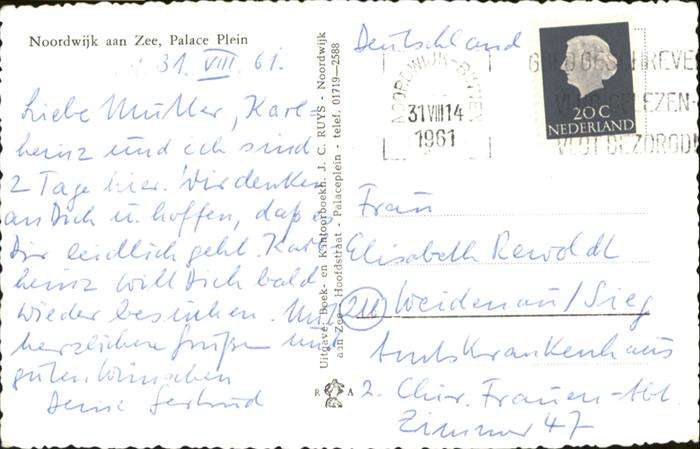 Noordwijk aan Zee, Palace Plein
31. VIII. 61.
Liebe Mutter, Karl-
heinz und ich sind
2 Tage hier. Wir denken
an Dich u. hoffen, daß es
Dir leidlich geht. Karl-
heinz will Dich bald
wieder besuchen. Mit
herzlichen Grüßen und
guten Wünschen
Deine Gertrud
Uitgave: Boek- en Kantoorboekh. J. C. RUYS - Noordwijk
aan Zee - Hoofdstraat - Palaceplein - telef. 01719—2588
R A
Deutschland
NOORDWIJK-BINNEN
31 VIII 14
1961
GOED GESCHREVEN
VLUG GELEZEN
VLOT BEZORGD
20 C
NEDERLAND
Frau
Elisabeth Rewoldt
(21b) Weidenau/Sieg
Amtskrankenhaus
2. Chir. Frauen-Abt.
Zimmer 47